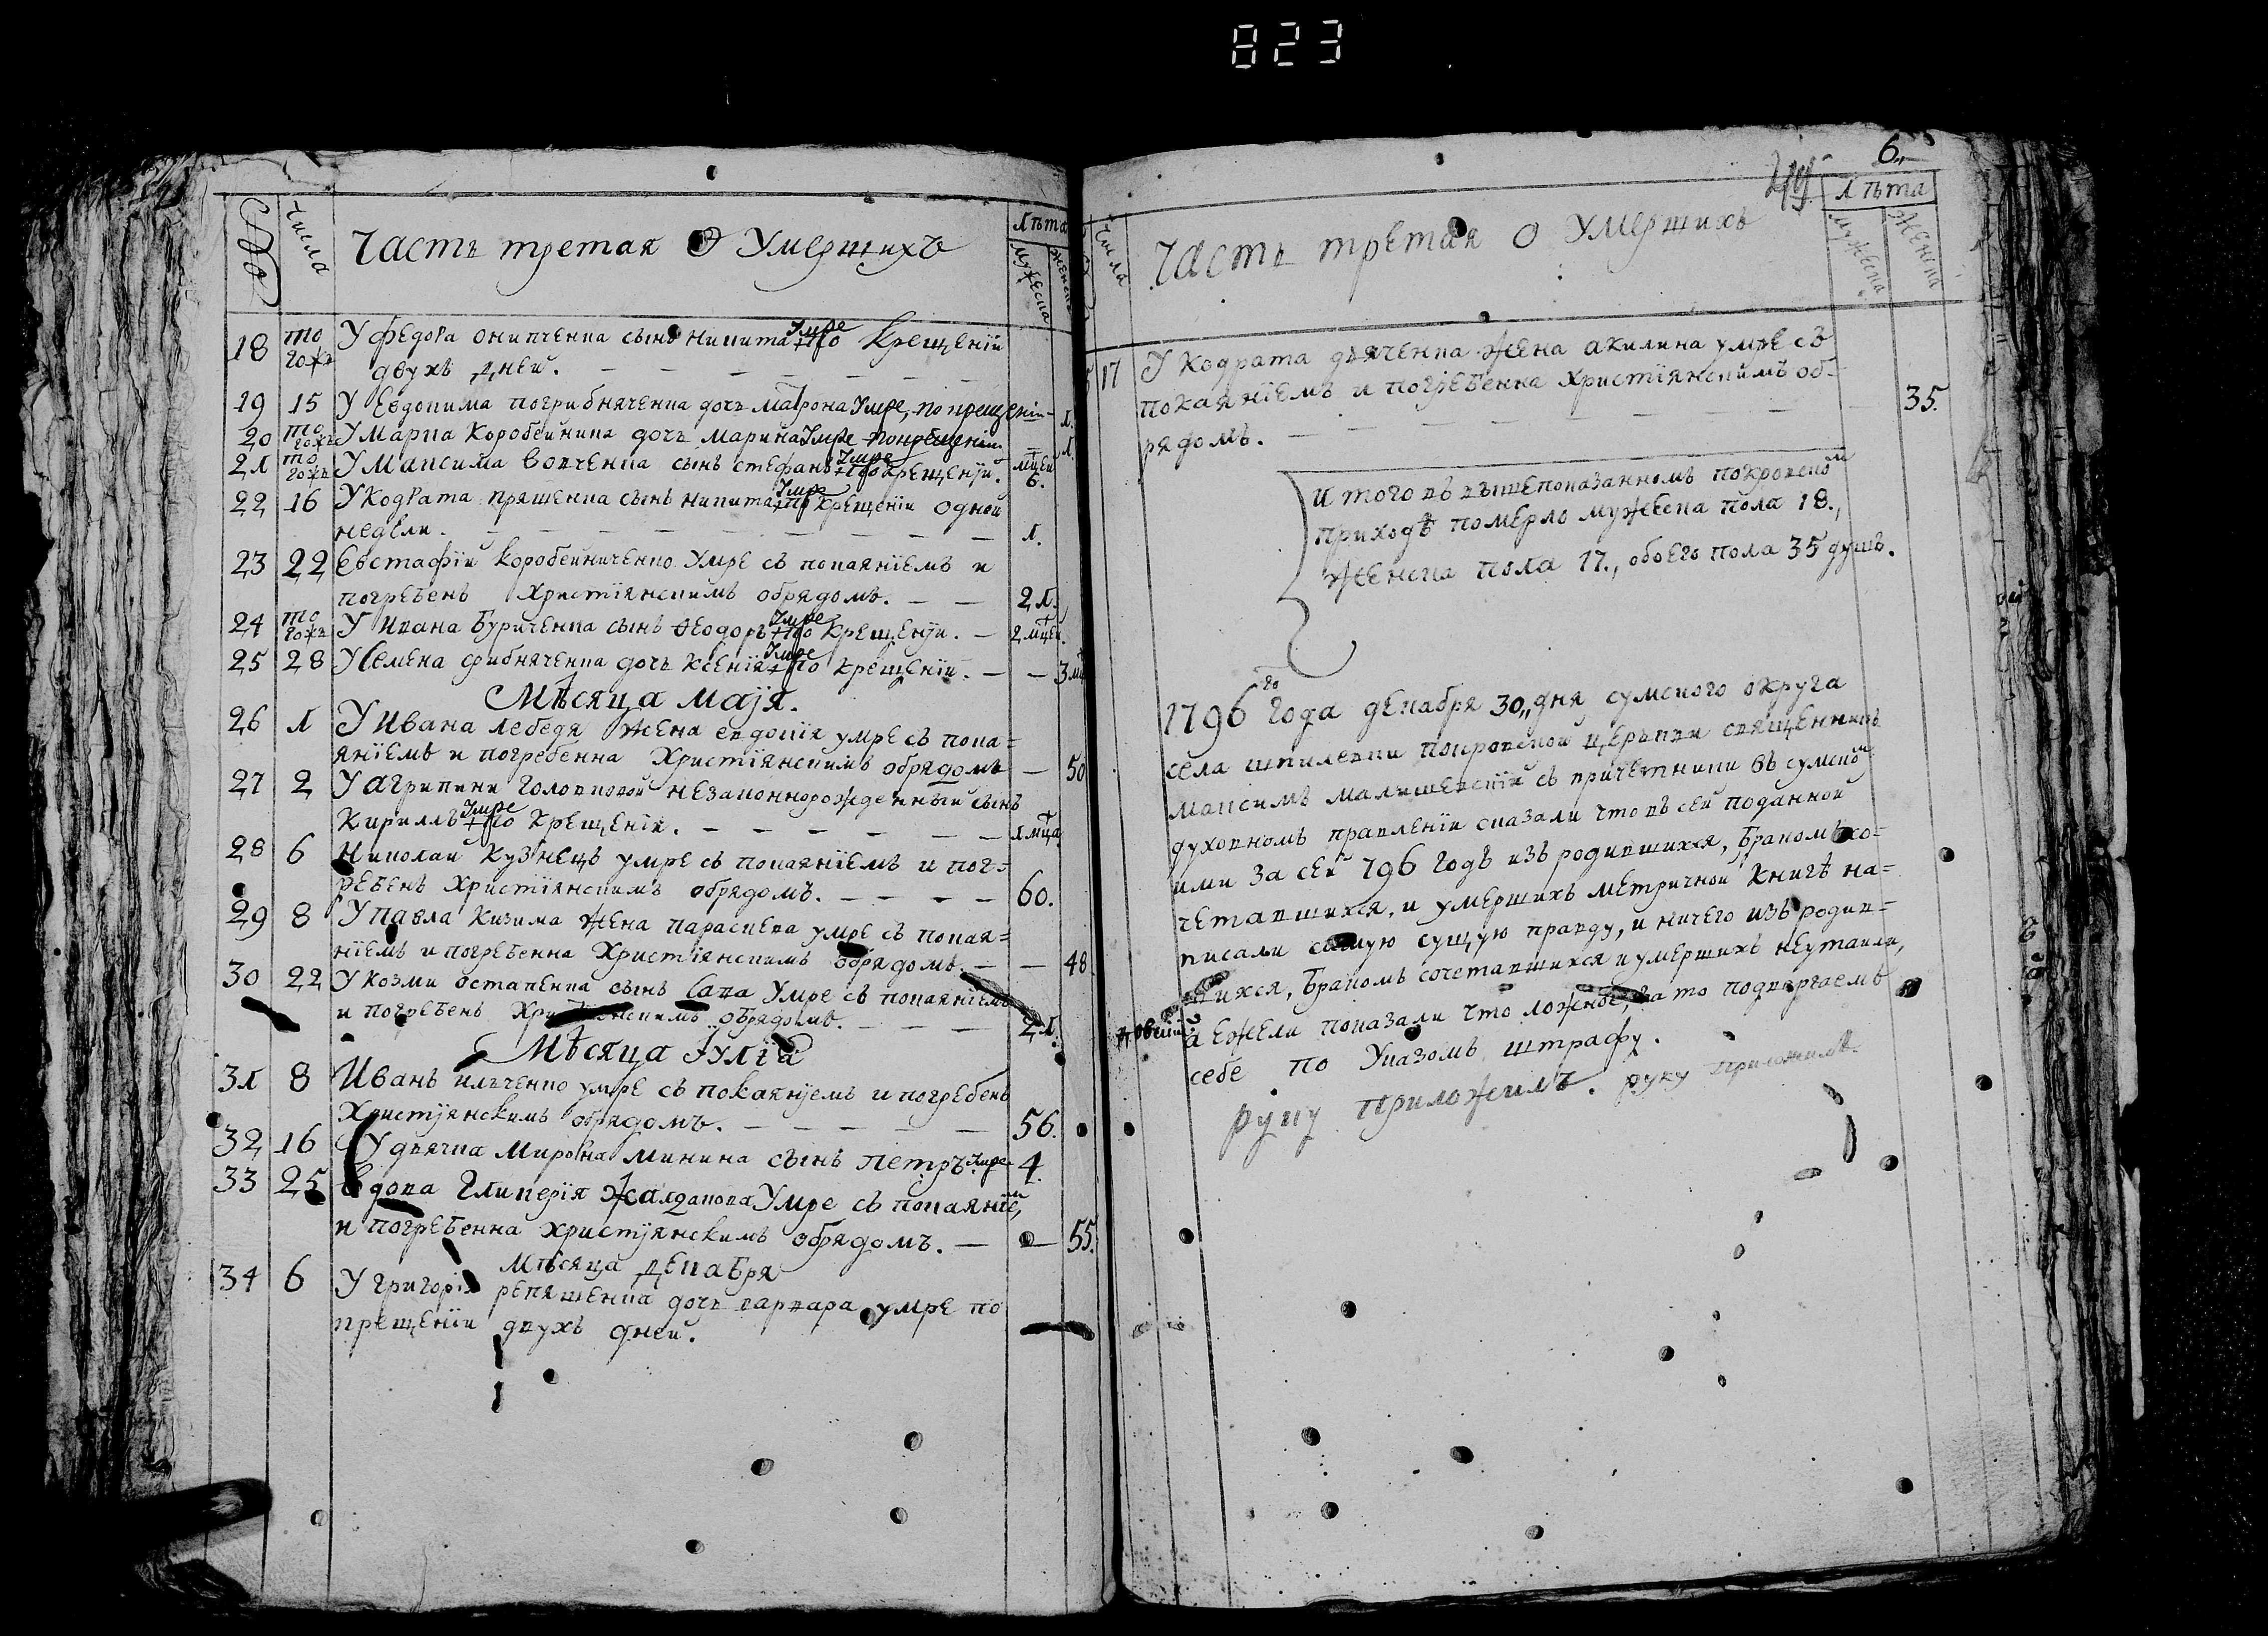 823
Числа
Часть третая О Умершихъ
Лѣта
Мужеска
женска
18 то гожъ У Федора Онипченка сынъ Никита Умре по Крещенїи
двухъ дней.
19 15 У Евдокима погрибняченка дочь Матрона Умре, по крещенїи 1.
20 то гожъ У Марка Коробейника дочь Марина Умре по крещенїи 1.
21 то гожъ У Максима вовченка сынъ стефанъ Умре по крещенїи. мцей 6.
22 16 У Кодрата пряшенка сынъ никита Умре по крещенїи одной
недели. 1.
23 22 Евстафїй Коробейниченко Умре съ покаянїемъ и
погребенъ христїянскимъ обрядомъ. 21.
24 то гожъ У Ивана Буриченка сынъ Ѳеодоръ Умре по Крещенїи. 2 мцей.
25 28 У Семена грибняченка дочь Ксенїя Умре по крещенїи. 3 мц
Мѣсяца Маїя.
26 1 У Ивана лебедя жена евдокїя умре съ пока=
янїемъ и погребенна Христїянскимъ обрядомъ 50
27 2 У агрипини головковой незаконнорожденный сынъ
Кириллъ Умре по Крещенїи. 1 мца
28 6 Николай Кузнецъ умре съ покаянїемъ и пог=
ребенъ христїянскимъ обрядомъ. 60.
29 8 У павла Кизима жена параскева умре съ покая=
нїемъ и погребенна Христїянскимъ обрядомъ. 48
30 22 У козми остапенка сынъ Сава Умре съ покаянїемъ
и погребенъ Христїянскимъ обрядомъ. 21.
Мѣсяца Іулїа
31 8 Иванъ илъченко умре съ покаянїемъ и погребенъ
Христїянскимъ обрядомъ. 56.
32 16 У дьячка Мирона Минина сынъ Петръ Умре 4.
33 25 Вдова Гликерїя Жалданова Умре съ покаянїемъ,
и погребенна христїянскимъ обрядомъ. 55.
Мѣсяца Декабря
34 6 У григорїя репяшенка дочь варвара умре по
крещенїи двухъ дней.
6.
Лѣта
Числа
Часть третая О Умершихъ
Мужеска
Женска
17 У Кодрата дьяченка жена акилина умре съ
покаянїемъ и погребенна христїянскимъ об=
рядомъ. 35.
Итого въ вышепоказанномъ покровской
приходѣ померло мужеска пола 18.,
женска пола 17., обоего пола 35 душъ.
1796 го года декабря 30,, дня сумского округа
села шпилевки покровской церькви священникъ
максимъ малишевскїй съ причетники въ сумскомъ
духовномъ правленїи сказали что въ сей поданной
ими за сей 796 годъ изъ родившихся, бракомъ со=
четавшихся, и умершихъ метричной книгѣ на=
писали самую сущую правду, и ничего изъ родив=
шихся, бракомъ сочетавшихся и умершихъ неутаили,
а ежели показали что ложное, зато подвергаемъ
себе по Указомъ штрафу.
руку приложилъ. руку приложилъ